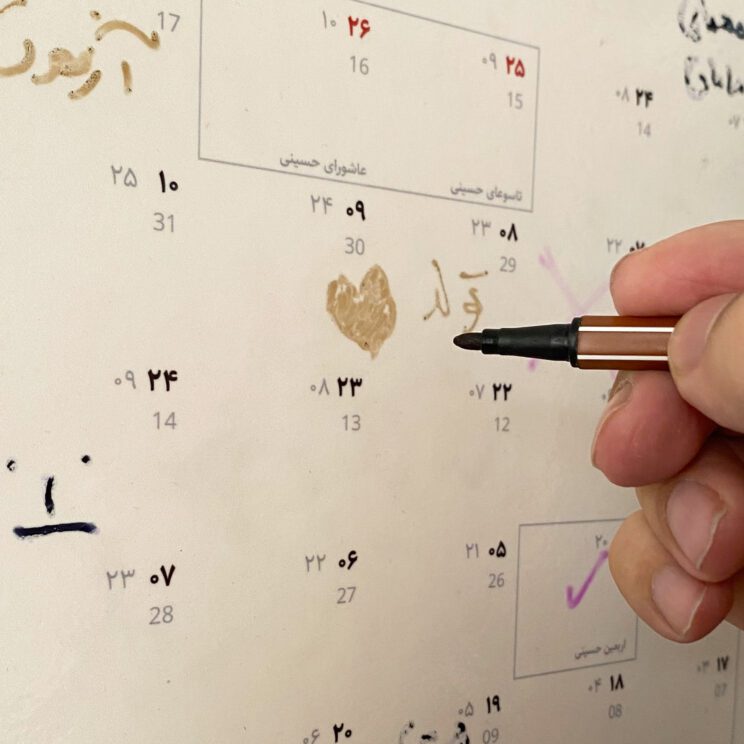 17
۱۰ ۲۶
16
۰۹ ۲۵
15
۰۸ ۲۴
14
۰۷
عاشورای حسینی
تاسوعای حسینی
۲۵ ۱۰
31
۲۴ ۰۹
30
۲۳ ۰۸
29
۲۲ ۰۷
۰۹ ۲۴
14
۰۸ ۲۳
13
۰۷ ۲۲
12
۲۳ ۰۷
28
۲۲ ۰۶
27
۲۱ ۰۵
26
۲۰
اربعین حسینی
۰۶ ۲۰
۰۵ ۱۹
09
۰۴ ۱۸
08
۰۳ ۱۷
07